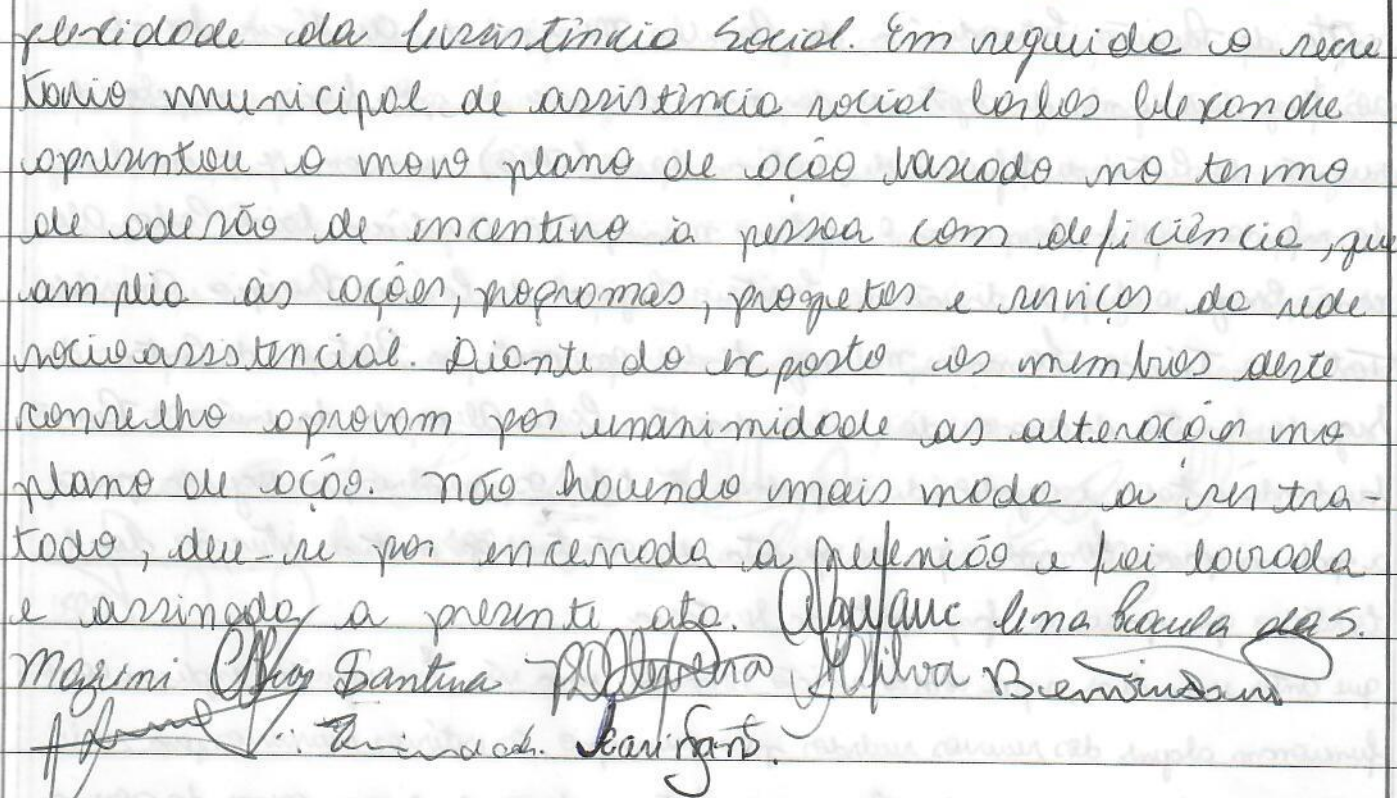 da Assistência Social. Em seguida o secre
tario municipal de assistência social Carlos Alexandre
apresentou o novo plano de ação baseado no termo
de adesão de incentivo a pessoa com deficiência, que
amplia as ações, programas, progetos e serviços da rede
socioassistencial. Diante do exposto os membros deste
conselho aprovam por unanimidade as alterações no
plano de ação. Não havendo mais nada a ser tra-
tado, deu-se por encerrada a reunião e foi lavrada
e assinada a presente ata. Ana Paula das S.
Mazini Santina Silva